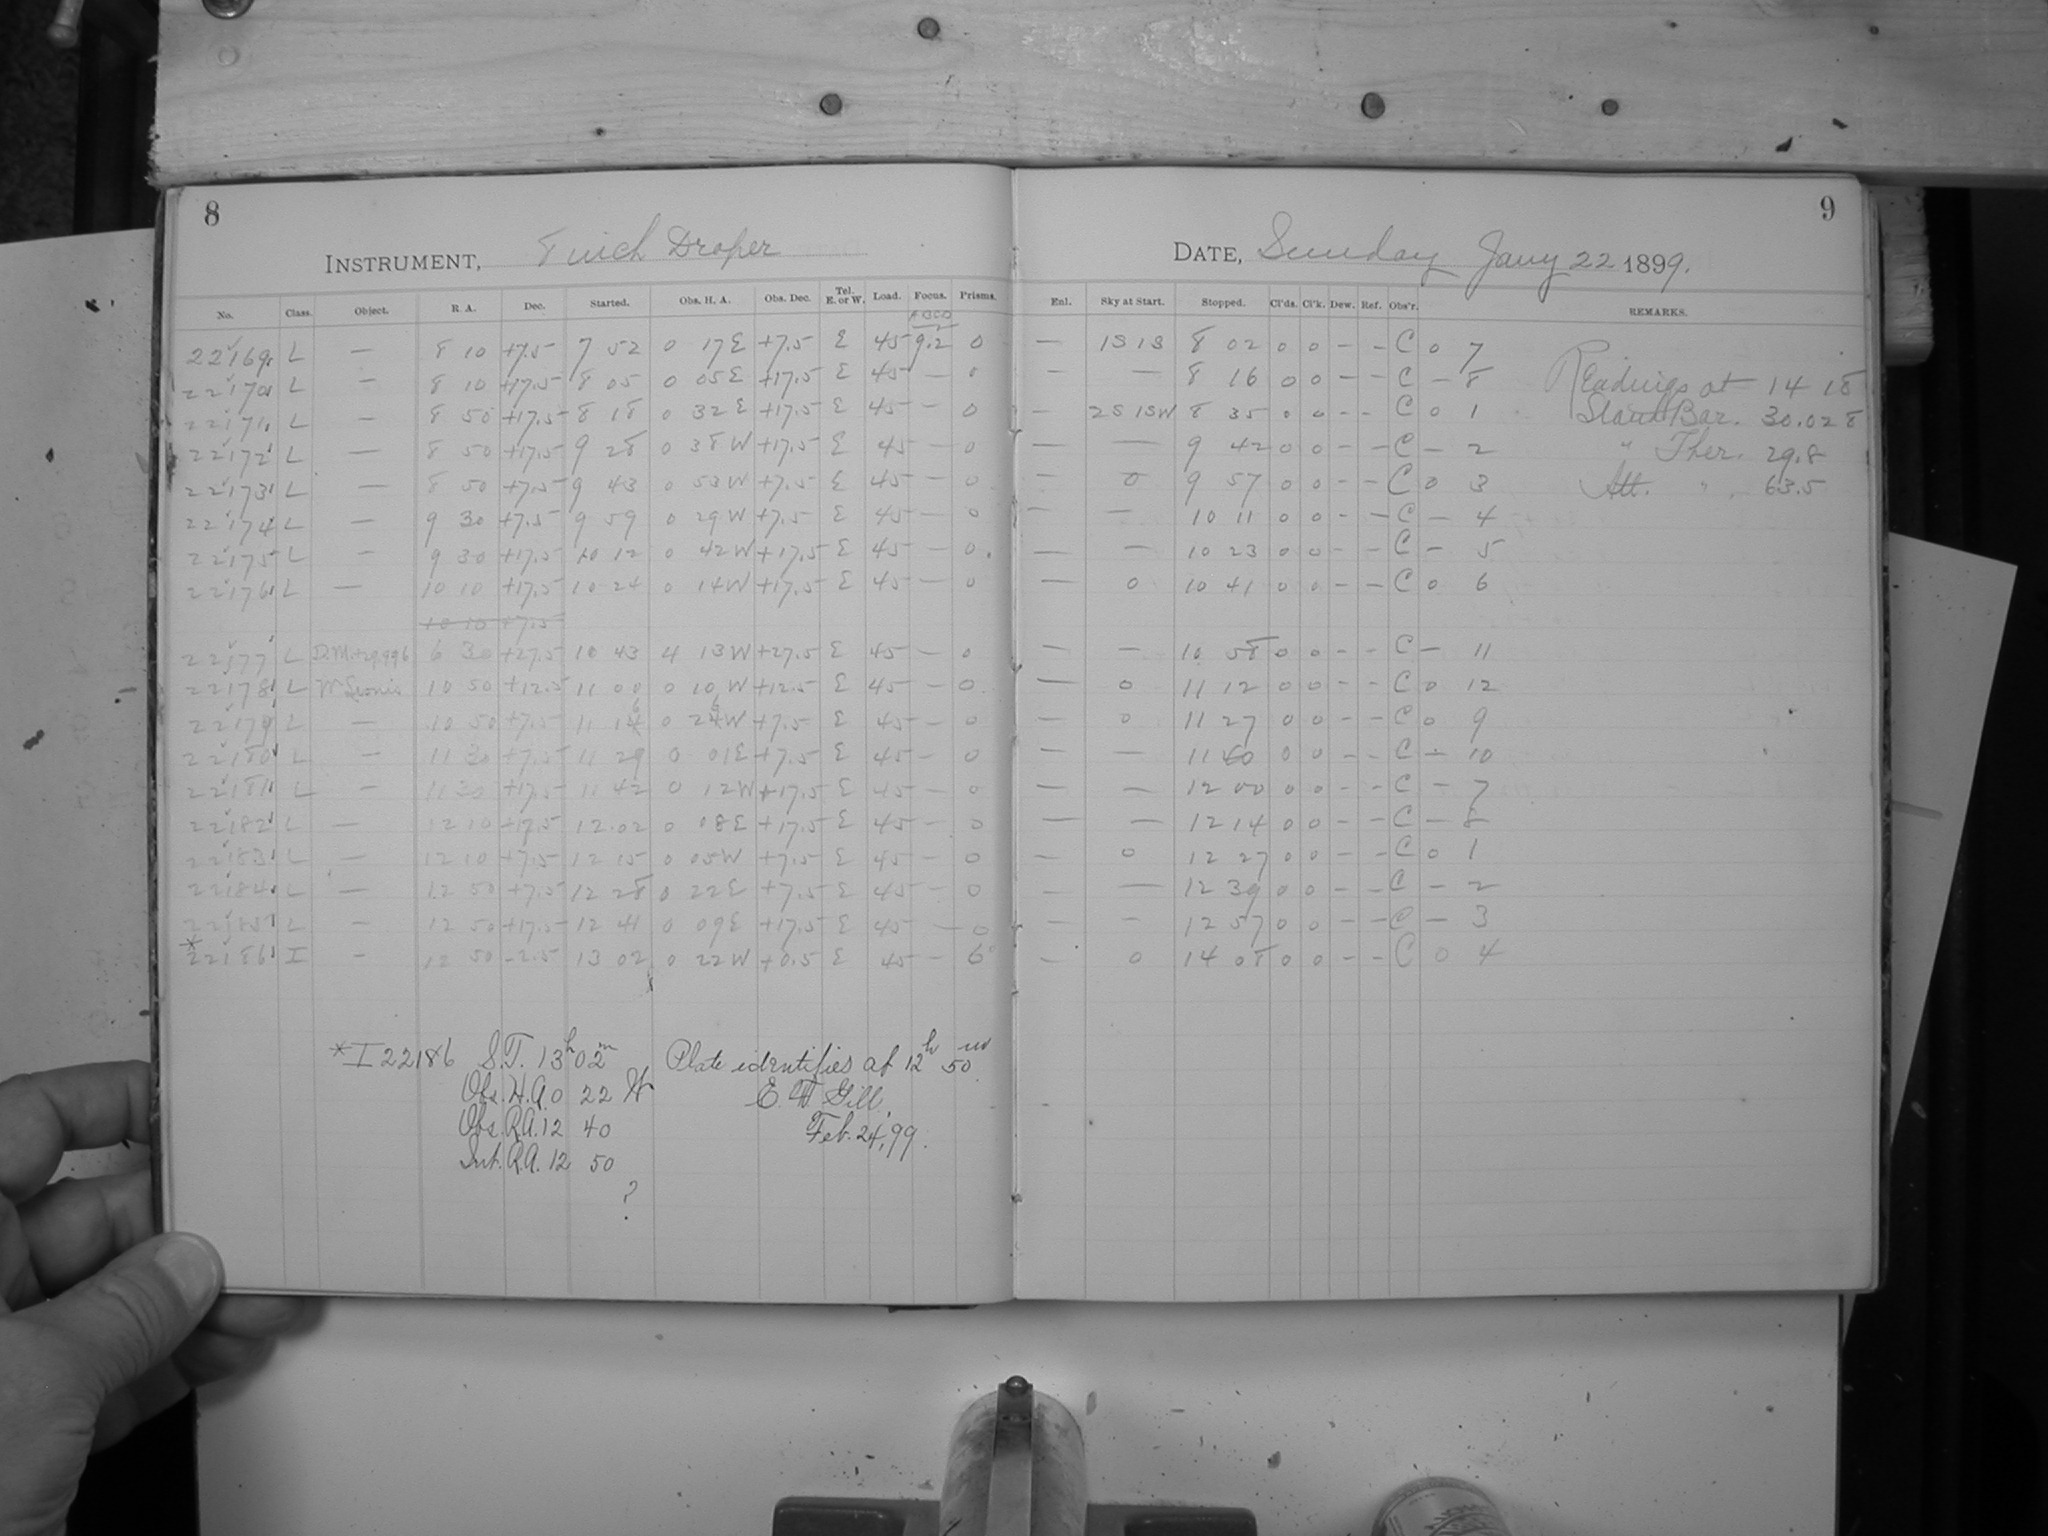 8
INSTRUMENT, 8 inch Draper
No. Class. Object. R. A. Dec. Started. Obs. H. A. Obs. Dec. Tel. E. or W. Load. Focus. Prisms.
ABCD
22169 L — 8 10 +7.5 7 52 0 17E +7.5 E 45 9.2 0
22170 L — 8 10 +17.5 8 05 0 05E +17.5 E 45 — 0
22171 L — 8 50 +17.5 8 18 0 32E +17.5 E 45 — 0
22172 L — 8 50 +17.5 9 28 0 38W +17.5 E 45 — 0
22173 L — 8 50 +7.5 9 43 0 53W +7.5 E 45 — 0
22174 L — 9 30 +7.5 9 59 0 29W +7.5 E 45 — 0
22175 L — 9 30 +17.5 10 12 0 42W +17.5 E 45 — 0
22176 L — 10 10 +17.5 10 24 0 14W +17.5 E 45 — 0
10 10 +7.5
22177 L D.M.+29,996 6 30 +27.5 10 43 4 13W +27.5 E 45 — 0
22178 L W Leonis 10 50 +12.5 11 00 0 10W +12.5 E 45 — 0
22179 L — 10 50 +7.5 11 16 0 26W +7.5 E 45 — 0
22180 L — 11 30 +7.5 11 29 0 01E +7.5 E 45 — 0
22181 L — 11 30 +17.5 11 42 0 12W +17.5 E 45 — 0
22182 L — 12 10 +17.5 12 02 0 08E +17.5 E 45 — 0
22183 L — 12 10 +7.5 12 15 0 05W +7.5 E 45 — 0
22184 L — 12 50 +7.5 12 28 0 22E +7.5 E 45 — 0
22185 L — 12 50 +17.5 12 41 0 09E +17.5 E 45 — 0
*22186 I — 12 50 -2.5 13 02 0 22W +0.5 E 45 — 6°
*I 22186 S.T. 13h 02m Plate identifies at 12h 50m
Obs. H.A. 0 22 W E. F. Gill,
Obs. R.A. 12 40 Feb. 24, 99.
Int. R.A. 12 50
?
9
DATE, Sunday Jany 22 1899.
Enl. Sky at Start. Stopped. Cl'ds. Cl'k. Dew. Ref. Obs'r. REMARKS.
— 1S 1S 8 02 0 0 — — C 0 7
— — 8 16 0 0 — — C — 8 Readings at 14 18
— 2S 1SW 8 35 0 0 — — C 0 1 Stand Bar. 30.028
— — 9 42 0 0 — — C — 2 " Ther. 29.8
— 0 9 57 0 0 — — C 0 3 Att. " 63.5
— — 10 11 0 0 — — C — 4
— — 10 23 0 0 — — C — 5
— 0 10 41 0 0 — — C 0 6
— — 10 58 0 0 — — C — 11
— 0 11 12 0 0 — — C 0 12
— 0 11 27 0 0 — — C 0 9
— — 11 40 0 0 — — C — 10
— — 12 00 0 0 — — C — 7
— — 12 14 0 0 — — C — 8
— 0 12 27 0 0 — — C 0 1
— — 12 39 0 0 — — C — 2
— — 12 57 0 0 — — C — 3
— 0 14 08 0 0 — — C 0 4